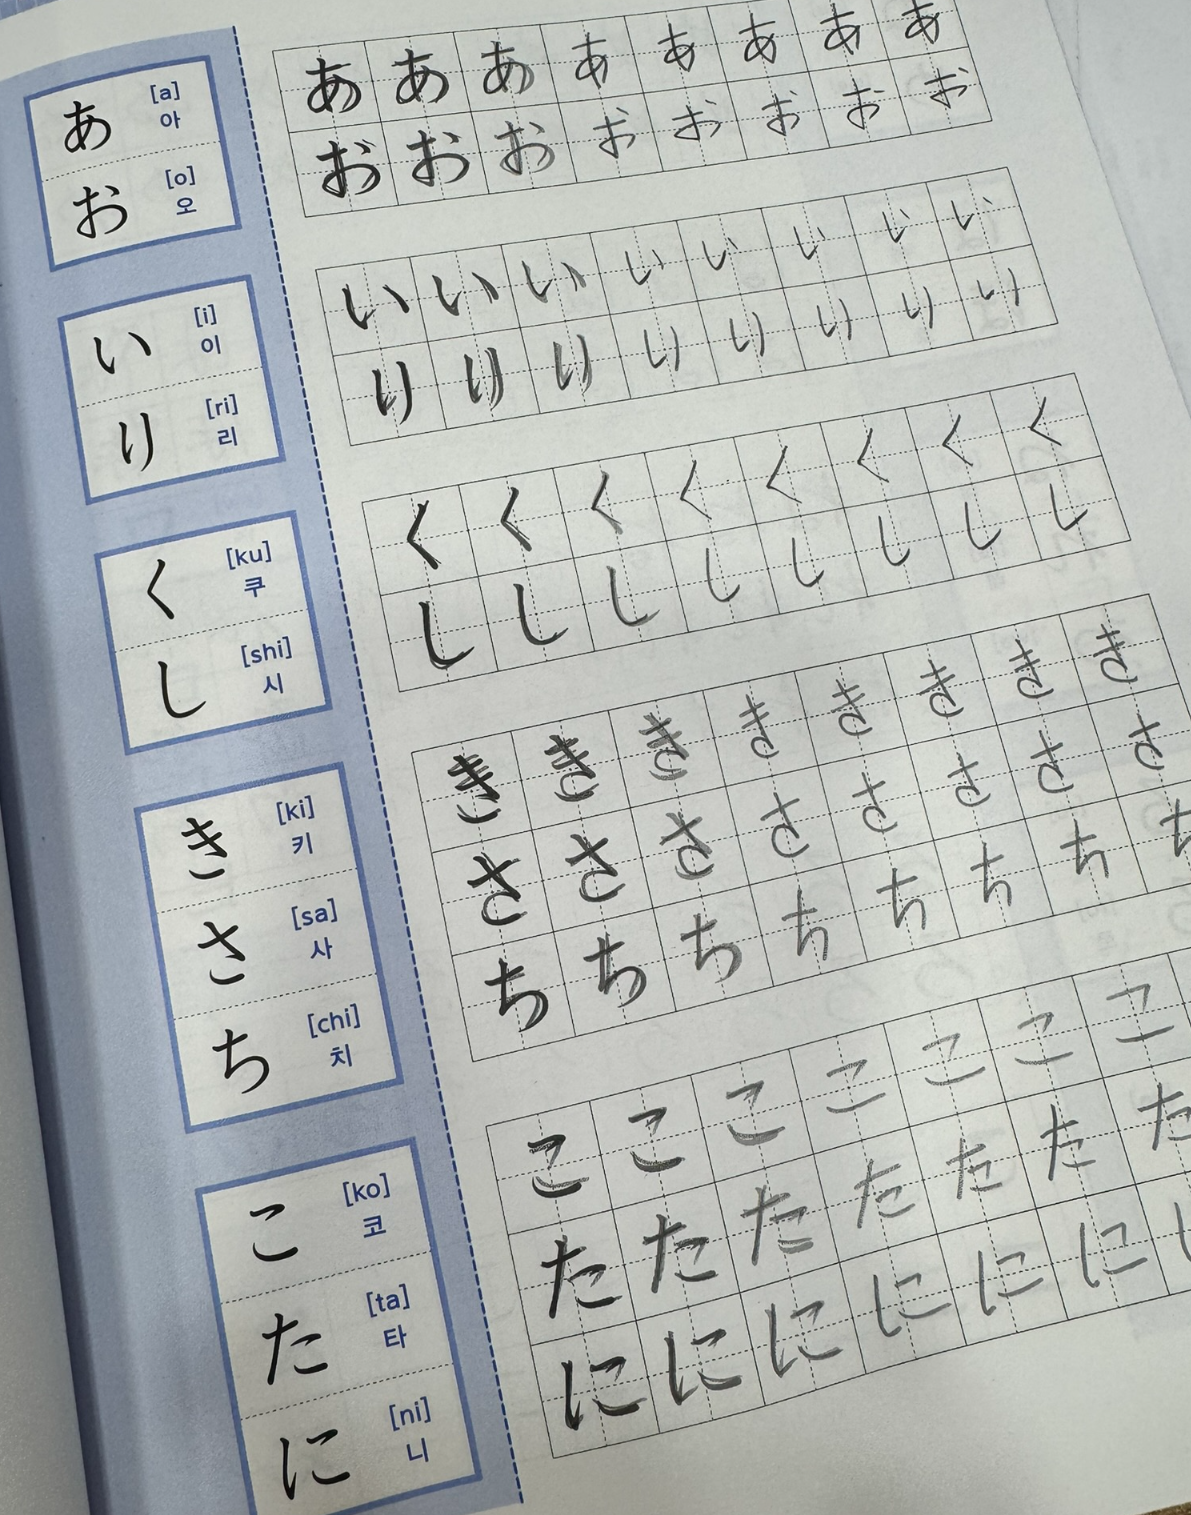 あ [a] 아 あ あ あ あ あ あ あ あ
お [o] 오 お お お お お お お お
い [i] 이 い い い い い い い い
り [ri] 리 り り り り り り り り
く [ku] 쿠 く く く く く く く く
し [shi] 시 し し し し し し し し
き [ki] 키 き き き き き き き き
さ [sa] 사 さ さ さ さ さ さ さ さ
ち [chi] 치 ち ち ち ち ち ち ち ち
こ [ko] 코 こ こ こ こ こ こ こ
た [ta] 타 た た た た た た た
に [ni] 니 に に に に に に